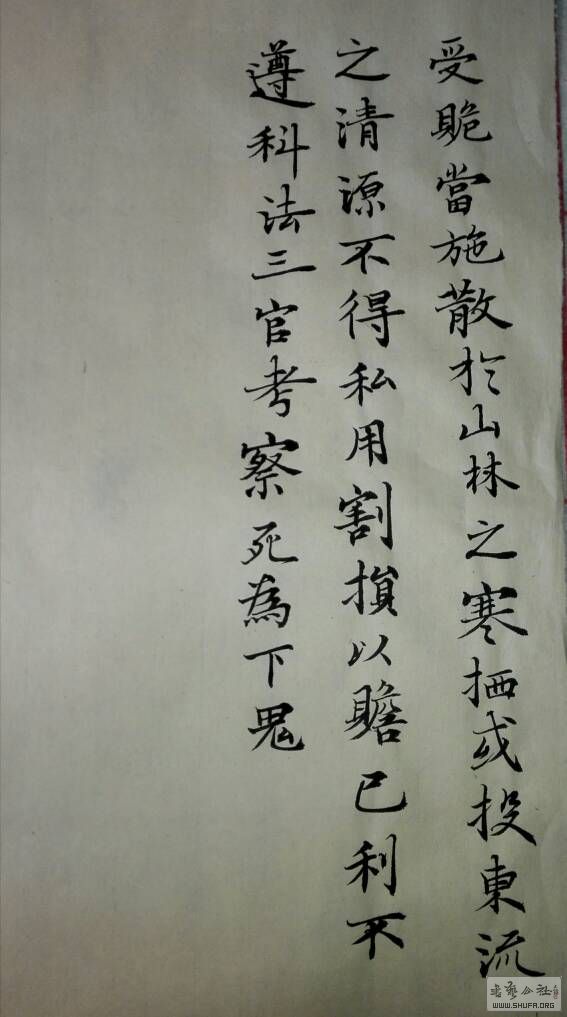 受贍當施散於山林之寒栖或投東流
之清源不得私用割損以贍己利不
遵科法三官考察死為下鬼
书艺公社
WWW.SHUFA.ORG